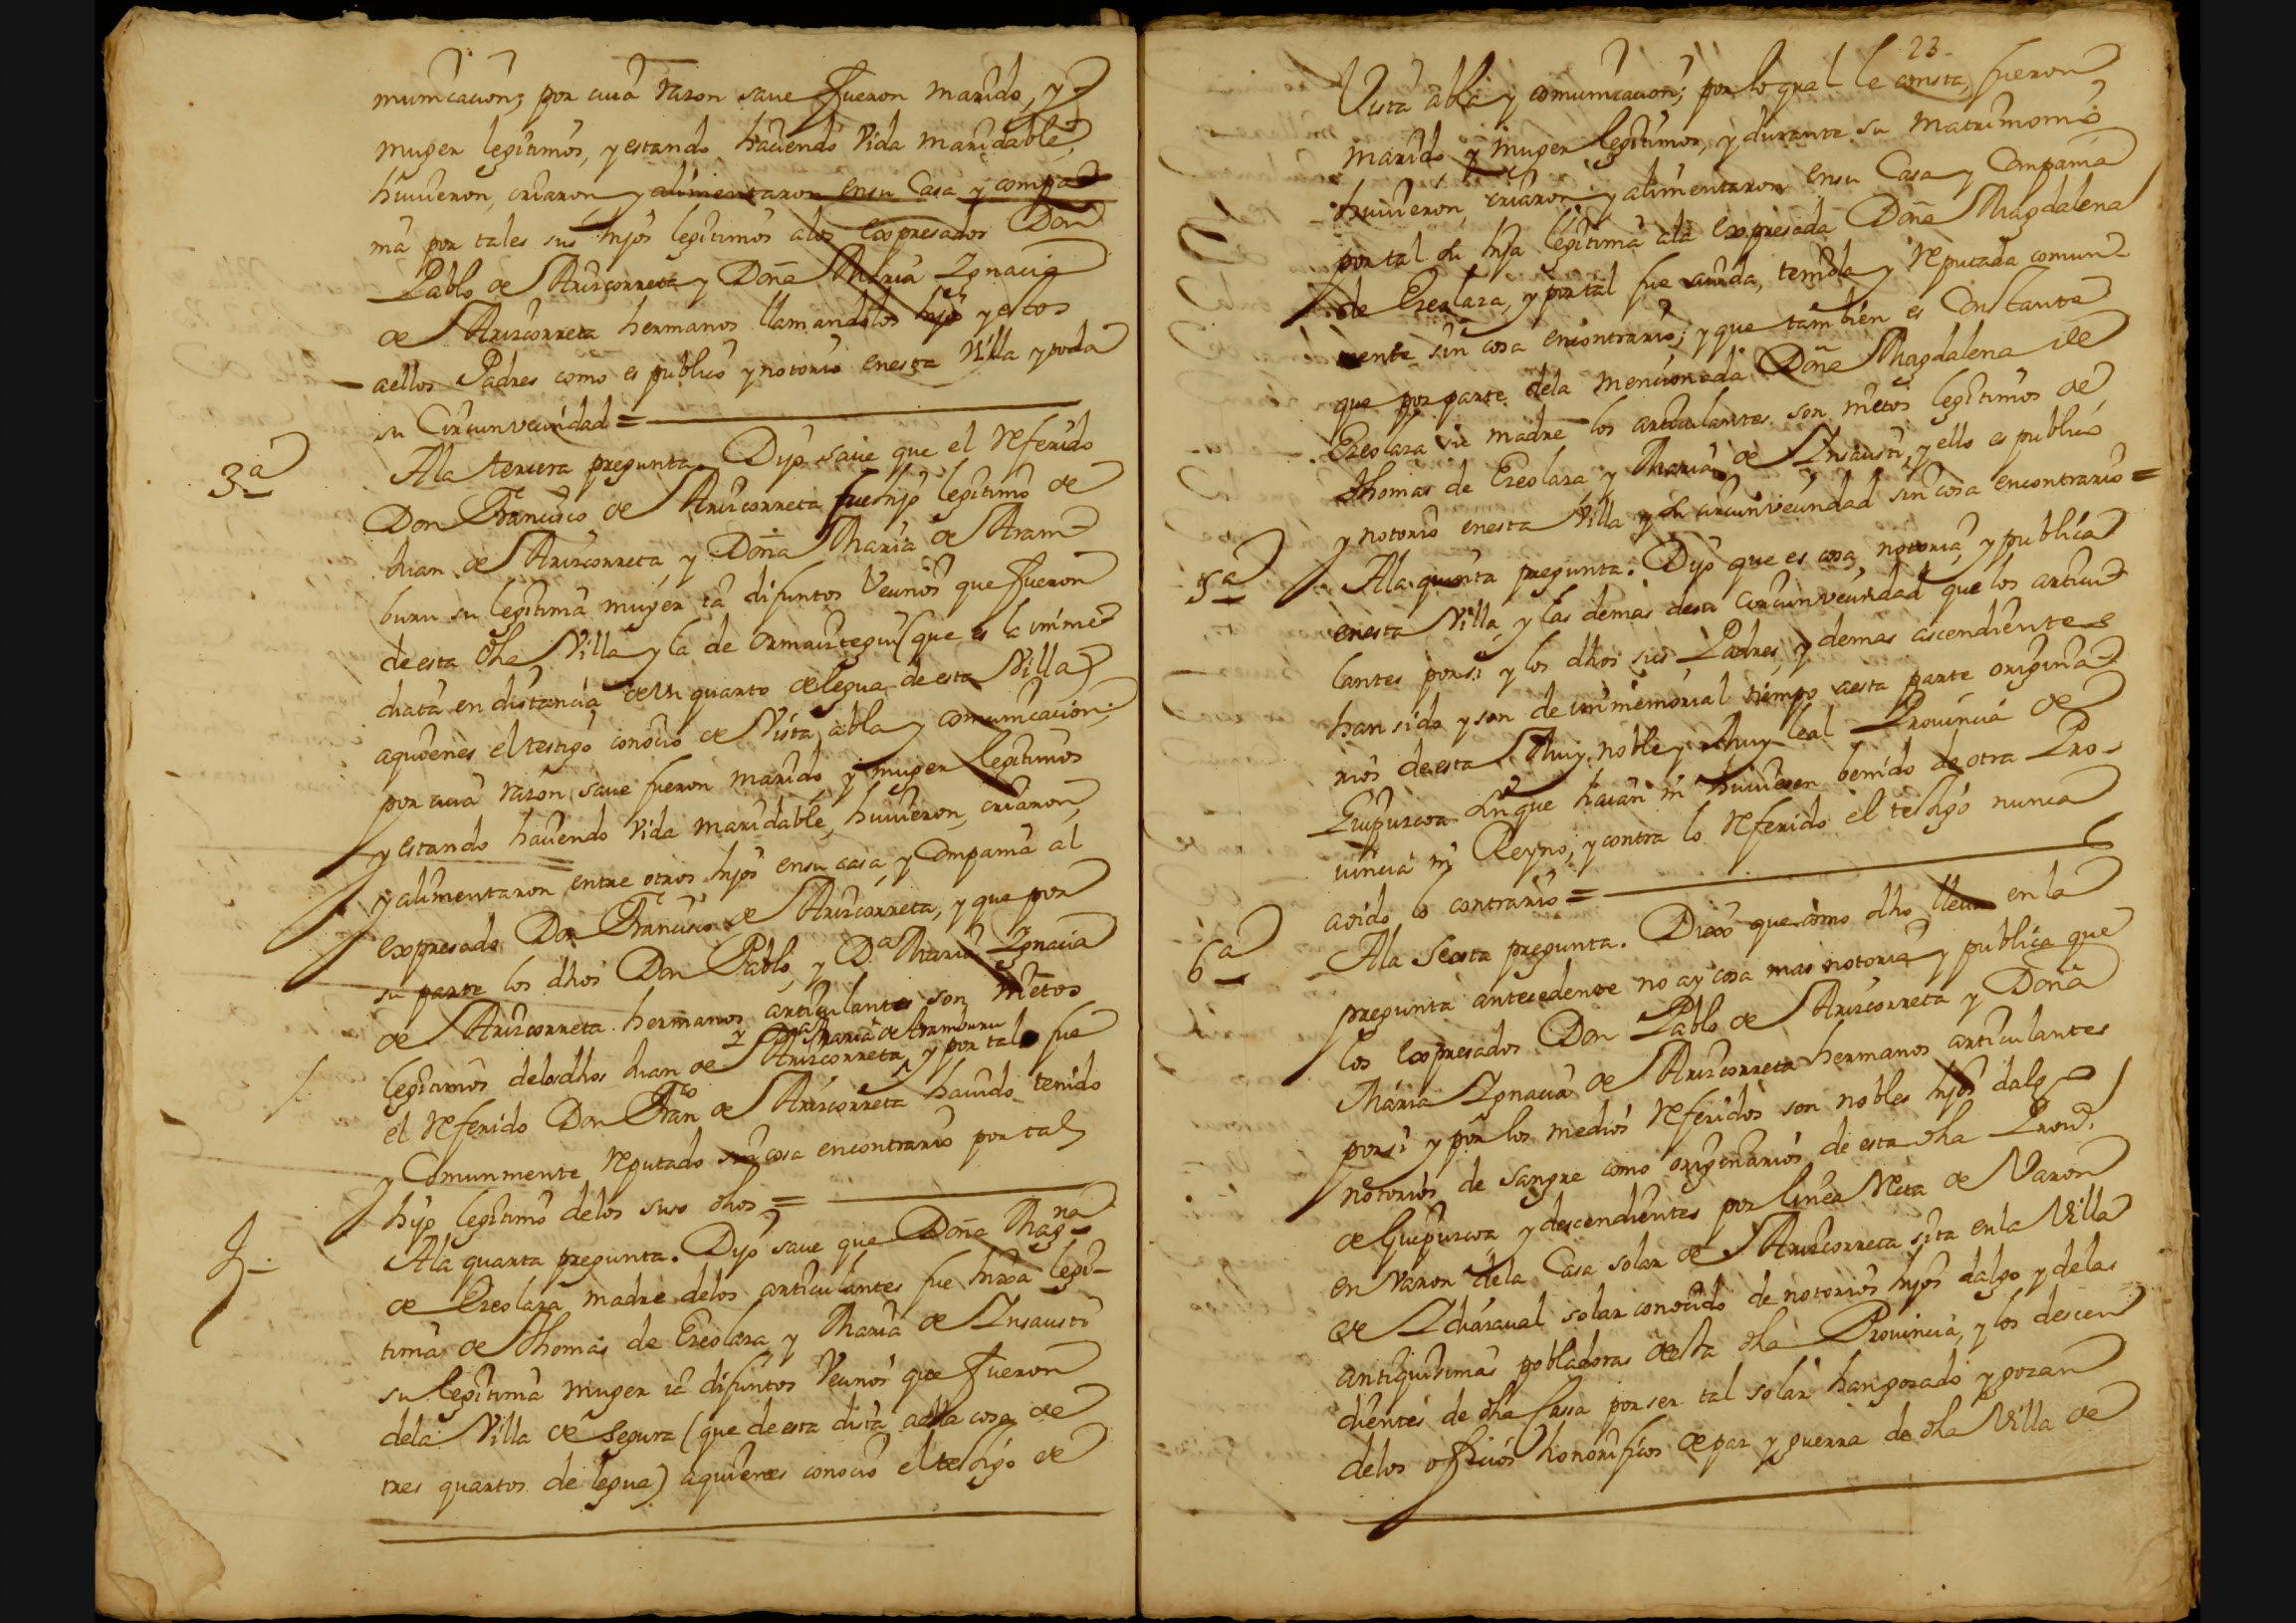 municacion; por cuia razon saue fueron marido, y
muger legitimos, y estando haciendo Vida maridable,
huuieron, criaron y alimentaron ensu Casa y compa
nia por tales sus hijos legitimos alos Expresados Don
Pablo de Arizcorreta y Doña Maria Ignacia
de Arizcorreta hermanos llamandolos hijos y estos
aellos Padres como es publico y notorio enesta Villa y toda
su Circunvecindad =
3ª
Ala tercera pregunta. Dijo saue que el referido
Don Francisco de Arizcorreta fue hijo legitimo de
Juan de Arizcorreta y Doña Maria de Aram
buru su legitima muger ia difuntos Vecinos que fueron
de esta dha Villa y la de ormaiztegui (que es la inme
diata en distancia de un quarto de legua de esta Villa)
aquienes el testigo conocio de Vista abla y comunicacion;
por cuia razon saue fueron marido y muger legitimos
y estando haciendo Vida maridable, huuieron, criaron,
y alimentaron entre otros hijos ensu casa y Compania al
expresado Don Francisco de Arizcorreta, y que por
su parte los dhos Don Pablo, y Dª Maria Ignacia
de Arizcorreta hermanos articulantes son nietos
y Dª Maria de Aramburu
legitimos delos dhos Juan de Arizcorreta, y por tal fue
el referido Don Franco de Arizcorreta hauido tenido
y Comunmente reputado sin cosa encontrario por tal
hijo legitimo delos suso dhos =
4
Ala quarta pregunta. Dijo saue que Doña Magna
de Ezeolaza madre delos articulantes fue hixa legi-
tima de Thomas de Ezeolaza y Maria de Insausti
su legitima muger ia difuntos Vecinos que fueron
dela Villa de Segura (que de esta dista aella cosa de
tres quartos de legua) aquienes conocio el testigo de
23
Vista abla y comunicacion; por lo qual le consta, fueron
marido y muger legitimos, y durante su Matrimonio
huuieron, criaron y alimentaron ensu Casa y Compania
por tal su hija legitima ala expresada Doña Magdalena
de Ezeolaza, y por tal fue auida, tenida y reputada comun
mente sin cosa encontrario; y que tambien es Constante
que por parte dela mencionada Doña Magdalena de
Ezeolaza su madre los articulantes son nietos legitimos de
Thomas de Ezeolaza y Maria de Insausti, y ello es publico
y notorio enesta Villa y su circunvecindad sin cosa encontrario =
5ª
Ala quinta pregunta. Dijo que es cosa notoria, y publica
enesta Villa y las demas desta Circunvecindad que los articu
lantes porsi y los dhos sus Padres, y demas ascendientes
han sido y son de inmemorial tiempo aesta parte origina
rios de esta Muy noble y Muy leal Prouincia de
Guipuzcoa sin que haian ni huuiesen benido de otra Pro-
uincia ni Reyno, y contra lo referido el testigo nunca
aoido lo contrario =
6ª
Ala Sexta pregunta. Dixo que como dho lleua en la
pregunta antecedente no ay cosa mas notoria y publica que
los Expresados Don Pablo de Arizcorreta y Doña
Maria Ignacia de Arizcorreta hermanos articulantes
porsi y por los medios referidos son nobles hijos dalgo
notorios de sangre como originarios de esta dha Prouª
de Guipuzcoa y descendientes por linea recta de Varon
en Varon dela Casa solar de Arizcorreta sita en la Villa
de Ydiazaual solar conocido de notorios hijos dalgo y delas
antiquisimas pobladoras desta dha Prouincia, y los descen
dientes de dha Cassa por ser tal solar han gozado y gozan
delos oficios honorificos de paz y guerra de dha Villa de